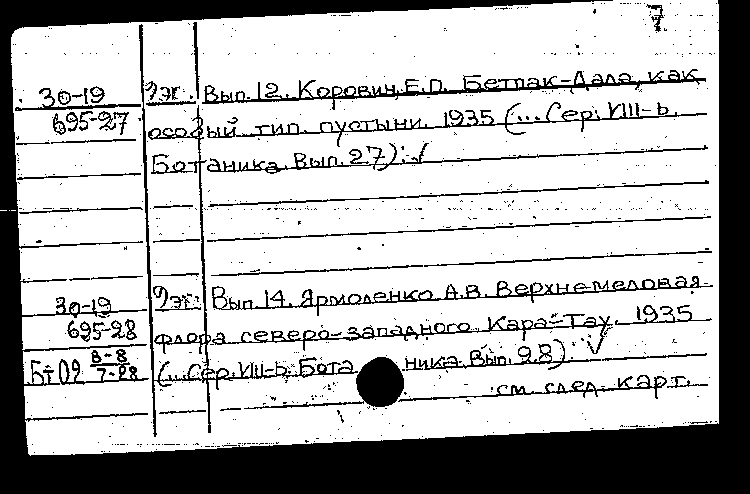 7
30-19 2эк. Вып. 12. Коровин, Е.П. Бетпак-Дала, как
695-27 особый тип пустыни. 1935 (... Сер. VIII-b.
Ботаника. Вып. 27). √
30-19 2эк. Вып. 14. Ярмоленко А.В. Верхнемеловая
695-28 флора северо-западного Кара-Тау. 1935
Бт 09 В-8/7-28 (... Сер. VIII-b. Ботаника. Вып. 28). √
см. след. карт.